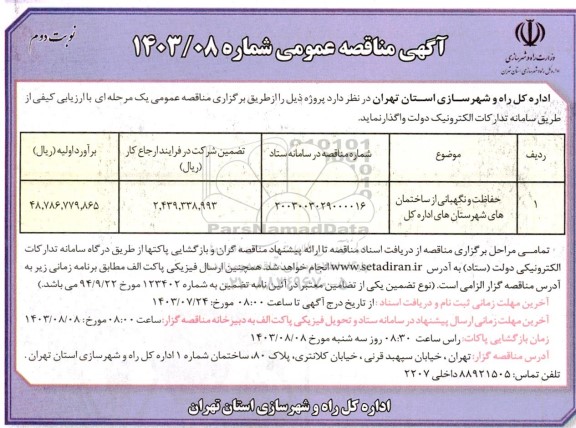 نوبت دوم
آگهی مناقصه عمومی شماره ۱۴۰۳/۰۸
وزارت راه و شهرسازی
اداره کل راه و شهرسازی استان تهران
اداره کل راه و شهرسازی استان تهران در نظر دارد پروژه ذیل را از طریق برگزاری مناقصه عمومی یک مرحله ای با ارزیابی کیفی از
طریق سامانه تدارکات الکترونیک دولت واگذار نماید.
ردیف موضوع شماره مناقصه در سامانه ستاد تضمین شرکت در فرایند ارجاع کار (ریال) برآورد اولیه (ریال)
۱ حفاظت و نگهبانی از ساختمان های شهرستان های اداره کل ۲۰۰۳۰۰۳۰۲۹۰۰۰۰۱۶ ۲,۴۳۹,۳۳۸,۹۹۳ ۴۸,۷۸۶,۷۷۹,۸۶۵
ParsNamadData
تمامی مراحل برگزاری مناقصه از دریافت اسناد مناقصه تا ارائه پیشنهاد مناقصه گران و بازگشایی پاکتها از طریق درگاه سامانه تدارکات
الکترونیکی دولت (ستاد) به آدرس www.setadiran.ir انجام خواهد شد. همچنین ارسال فیزیکی پاکت الف مطابق برنامه زمانی زیر به
آدرس مناقصه گزار الزامی است. (نوع تضمین یکی از تضامین معتبر در آئین نامه تضمین به شماره ۱۲۳۴۰۲ مورخ ۹۴/۹/۲۲ می باشد.)
آخرین مهلت زمانی ثبت نام و دریافت اسناد : از تاریخ درج آگهی تا ساعت ۰۸:۰۰ مورخ: ۱۴۰۳/۰۷/۲۴
آخرین مهلت زمانی ارسال پیشنهاد در سامانه ستاد و تحویل فیزیکی پاکت الف به دبیرخانه مناقصه گزار: ساعت ۰۸:۰۰ مورخ: ۱۴۰۳/۰۸/۰۸
زمان بازگشایی پاکات: راس ساعت ۰۸:۳۰ روز سه شنبه مورخ ۱۴۰۳/۰۸/۰۸
آدرس مناقصه گزار: تهران ، خیابان سپهبد قرنی ، خیابان کلانتری، پلاک ۸۰، ساختمان شماره ۱ اداره کل راه و شهرسازی استان تهران .
تلفن تماس: ۸۸۹۲۱۵۰۵ داخلی ۲۲۰۷
اداره کل راه و شهرسازی استان تهران